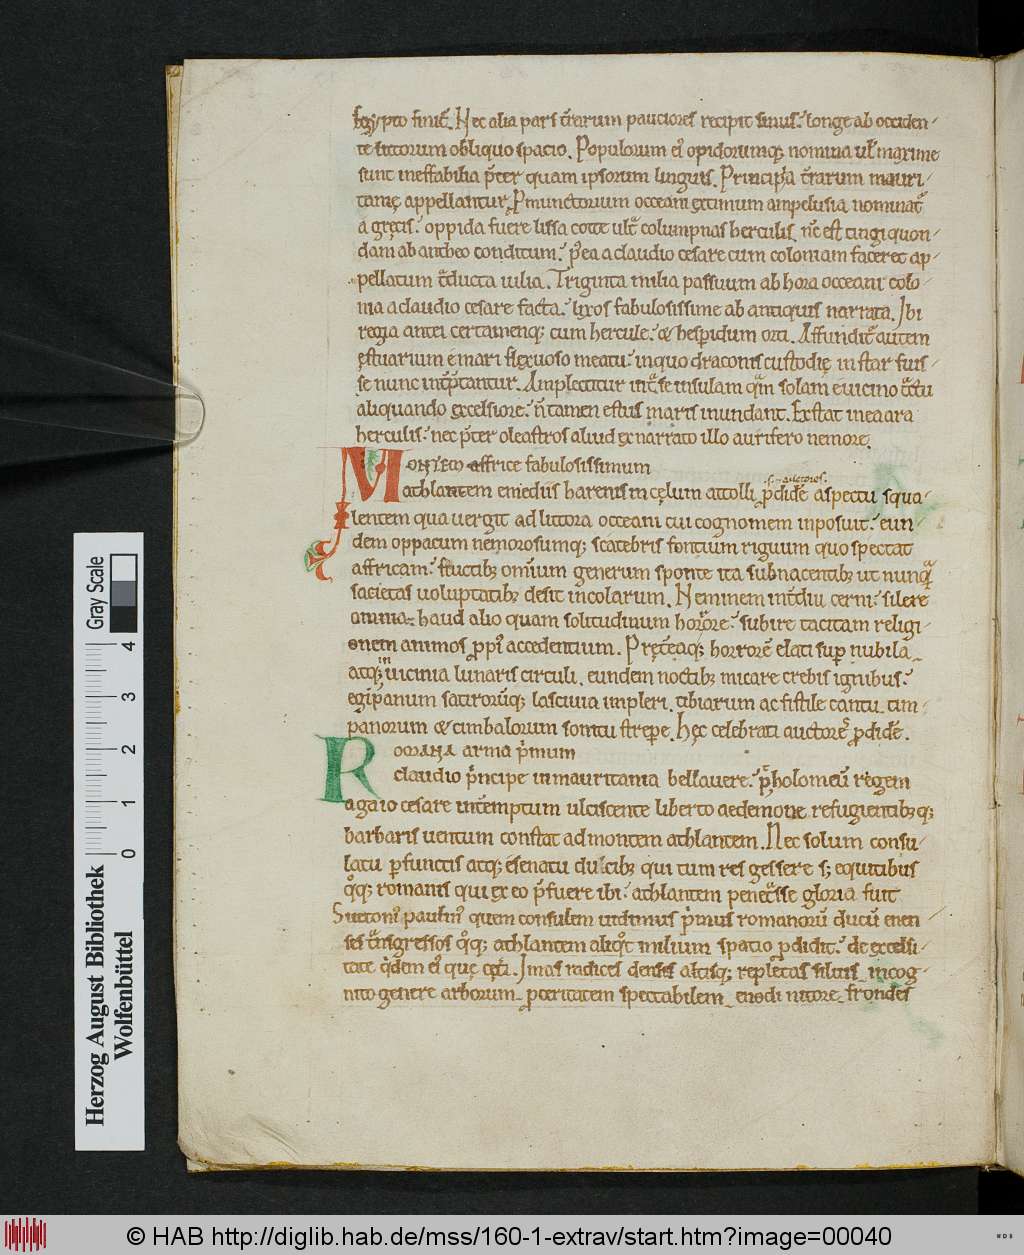 Egypto finit̄. Nec alia pars t̄rarum pauciores recipit sinus. longe ab occiden-
te littorum obliquo spacio. Populorum ei' opidorumq; nomina ul' maxime
sunt ineffabilia p̄ter quam ipsorum linguis. Principia t̄rarum mauri-
tanię appellantur. Pmunctorium occeani extimum ampelusia nominat̄
a gręcis. oppida fuere lissa cotte ult̄ columpnas herculis. nc̄ est tingi quon-
dam ab antheo conditum. p'ea a claudio cesare cum coloniam faceret ap-
pellatum t̄ducta iulia. Triginta milia passuum ab hora occeani colo-
nia a claudio cesare facta. lixos fabulosissime ab antiquis narrata. Ibi
regia antei certamenq; cum hercule. & hespidum orti. Affundit̄ autem
ęstuarium e mari flexuoso meatu. in quo draconis custodię instar fuis-
se nunc int̄p̄tantur. Amplectitur int̄ se insulam q̄m solam e uicino t̄ctu
aliquando excelsiore. n̄ tamen estus maris inundant. Exstat in ea ara
herculis. nec p̄ter oleastros aliud ex narrato illo aurifero nemore.
Montem affrice fabulosissimum
.s. auctores.
athlantem e mediis harenis in cęlum attolli p̄didēr aspectu squa-
lentem qua uergit ad littora occeani cui cognomen inposuit. eun-
dem oppacum nemorosumq; scatebris fontium riguum quo spectat
affricam. fructib; omnium generum sponte ita subnacentib; ut nunq̄
sacietas uoluptatib; desit incolarum. Neminem int̄diu cerni. silere
omnia haud alio quam solitudinum horrore. subire tacitam religi-
onem animos p̄pi' accedentium. Pręt̄eaq; horrorē elati sup̄ nubila
atq; in uicinia lunaris circuli. eundem noctib; micare crebis ignibus.
egipanum satirorūq; lasciuia impleri. tibiarum ac fistile cantu. tim-
panorum & cimbalorum sonitu strepe. hęc celebrati auctores p̄didēr.
Romana arma p̄mum
claudio p̄ncipe in mauritania bellauere. ptholomeū regem
a gaio cesare int̄emptum ulciscente liberto aedemone. refugientib; q;
barbaris uentum constat ad montem athlantem. Nec solum consu-
latu p̄functis atq; e senatu ducib; qui tum res gessere s; equitibus
q̄q; romanis qui ex eo p̄fuere ibi. athlantem penet̄sse gloria fuit
Suetoni' paulin' quem consulem uidimus p̄mus romanorū ducū enen-
ses t̄nsgressos q̄q; athlantem aliqt̄ milium spatio p̄didit. de excelsi-
tate q̄dem ei' quę cet̄i. Imas radices densis altisq; repletas siluis incog-
nito genere arborum p̄ceritatem spectabilem enodi nitore frondes
Gray Scale
4
3
2
1
0
Herzog August Bibliothek
Wolfenbüttel
© HAB http://diglib.hab.de/mss/160-1-extrav/start.htm?image=00040